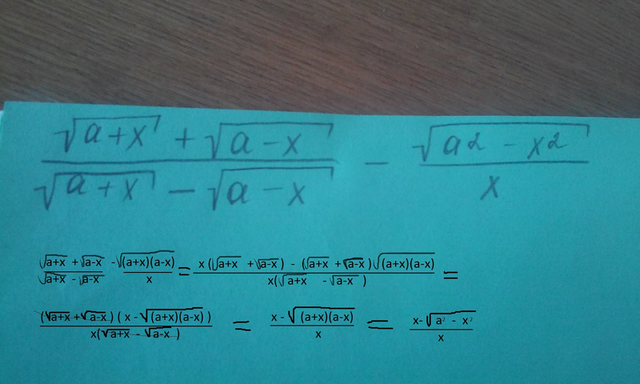 (√(a+x) + √(a-x))/(√(a+x) - √(a-x)) - √(a² - x²)/x
(√(a+x) + √(a-x))/(√(a+x) - √(a-x)) - √((a+x)(a-x))/x = (x(√(a+x) + √(a-x)) - (√(a+x) + √(a-x))√((a+x)(a-x)))/(x(√(a+x) - √(a-x))) =
((√(a+x) + √(a-x))(x - √((a+x)(a-x))))/(x(√(a+x) - √(a-x))) = (x - √((a+x)(a-x)))/x = (x - √(a² - x²))/x